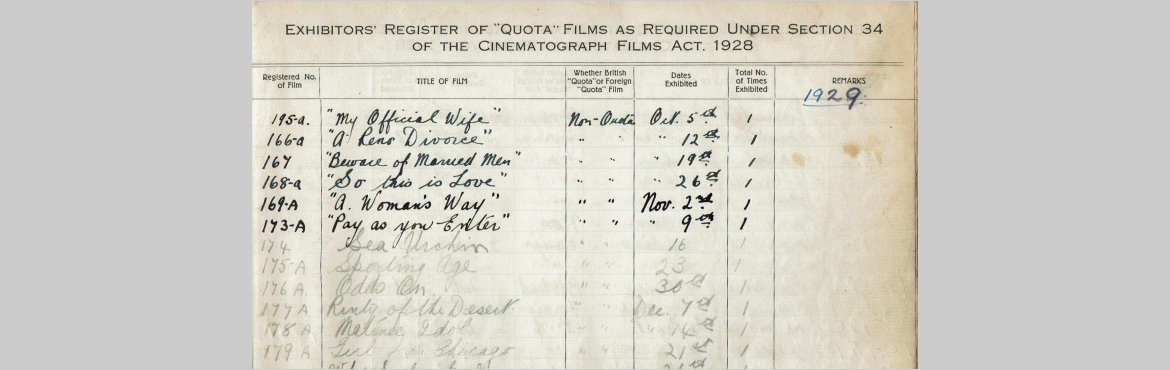 EXHIBITORS' REGISTER OF "QUOTA" FILMS AS REQUIRED UNDER SECTION 34
OF THE CINEMATOGRAPH FILMS ACT. 1928
Registered No. of Film TITLE OF FILM Whether British "Quota" or Foreign "Quota" Film Dates Exhibited Total No. of Times Exhibited REMARKS
1929.
195-a. "My Official Wife" Non-Quota Oct. 5th 1
166-a "A Reno Divorce" " " " 12th 1
167 "Beware of Married Men" " " " 19th 1
168-a "So this is Love" " " " 26th 1
169-A "A. Woman's Way" " " Nov. 2nd 1
173-A "Pay as you Enter" " " " 9th 1
174 Sea Urchin " " 16 1
175-A Sporting Age " " 23 1
176 A. Odds On " " 30th 1
177 A Rinty of the Desert " " Dec. 7th 1
178 A Matinee Idol " " " 14th 1
179 A Girl from Chicago " " 21st 1